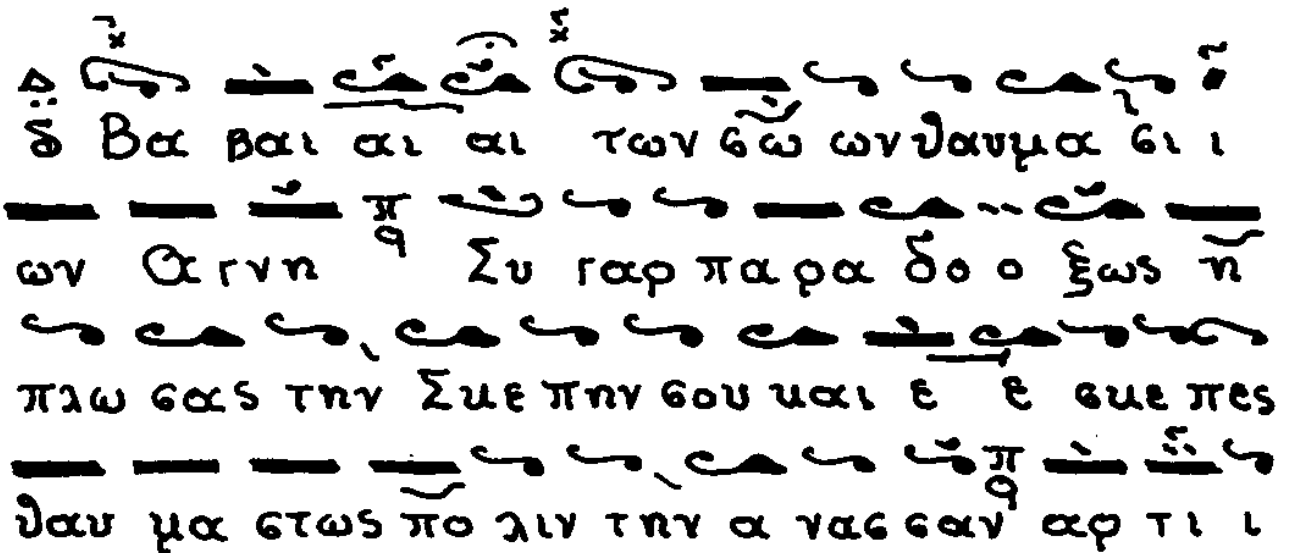 δ Βα βαι αι αι των σω ων θαυμα σι ι
ων Α γνη Συ γαρ πα ρα δο ο ξως η
πλω σας την Σκε πην σου και ε ε σκε πες
θαυ μα στως πο λιν την α νασ σαν αρ τι ι